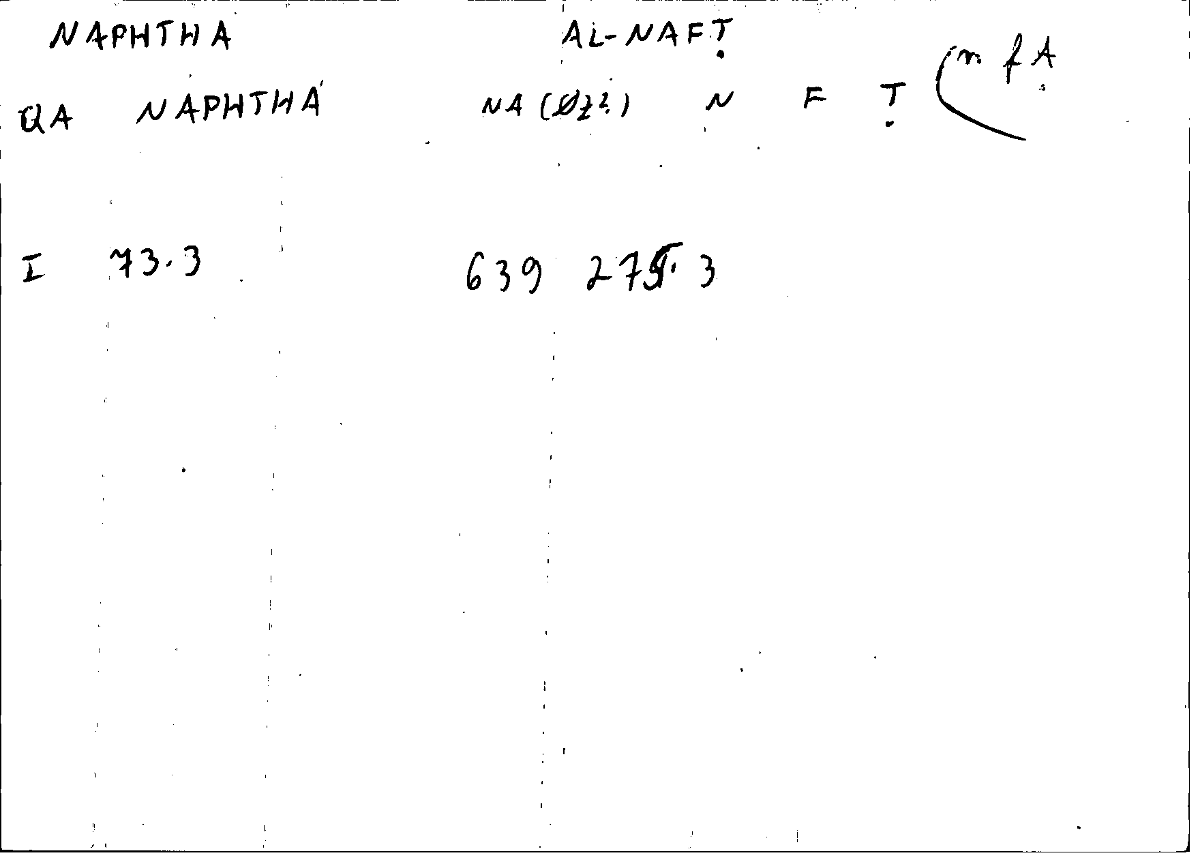 NAPHTHA AL-NAFṬ
QA NAPHTHA NA ( N F Ṭ
I 73.3 639 3